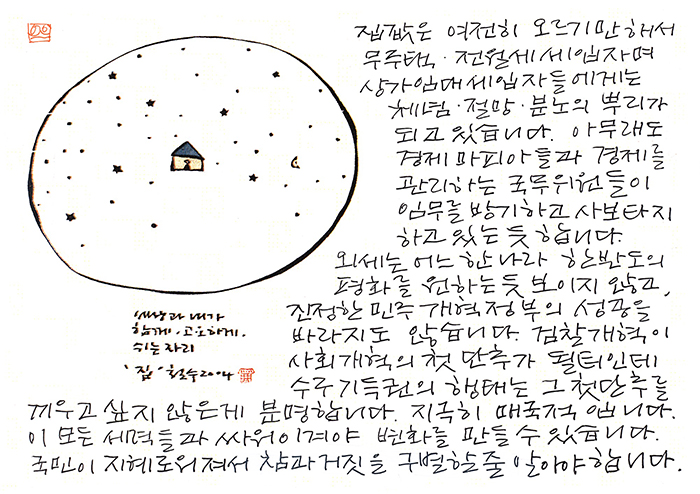 집값은 여전히 오르기만 해서
무주택·전월세 세입자며
상가임대 세입자들에게는
체념·절망·분노의 뿌리가
되고 있습니다. 아무래도
경제 마피아들과 경제를
관리하는 국무위원들이
임무를 방기하고 사보타지
하고 있는 듯 합니다.
외세는 어느 한 나라 한반도의
평화를 원하는 듯 보이지 않고,
진정한 민주 개혁 정부의 성공을
바라지도 않습니다. 검찰개혁이
사회개혁의 첫 단추가 될터인데
수구 기득권의 행태는 그 첫단추를
끼우고 싶지 않은게 분명합니다. 지극히 매국적 입니다.
이 모든 세력들과 싸워 이겨야 변화를 만들 수 있습니다.
국민이 지혜로워져서 참과 거짓을 구별할 줄 알아야 합니다.
세상과 내가
함께·고요하게·
쉬는 자리
'집' 철수 2004